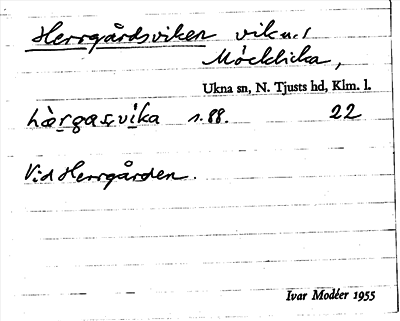 Herrgårdsviken vik u. l
Möcklicka,
Ukna sn, N. Tjusts hd, Klm. l.
hærgas,vika 1.88. 22
Vid Herrgården.
Ivar Modéer 1955